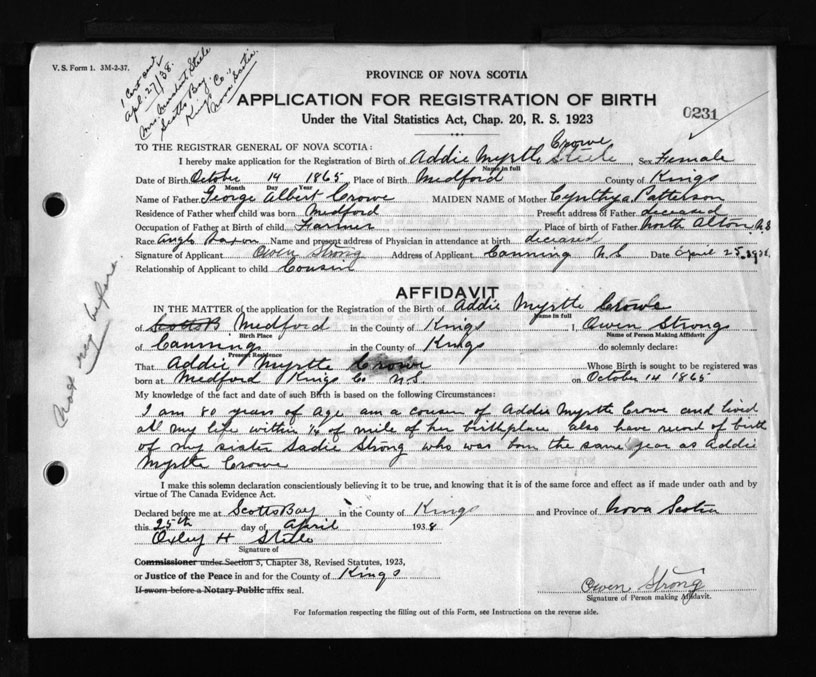 V. S. Form 1. 3M-2-37.
1 Cert out
Apl. 27/38.
Mrs. Steele
Scotts Bay,
Kings Co.,
Nova Scotia.
PROVINCE OF NOVA SCOTIA
APPLICATION FOR REGISTRATION OF BIRTH
0231
Under the Vital Statistics Act, Chap. 20, R. S. 1923
TO THE REGISTRAR GENERAL OF NOVA SCOTIA:
Crowe
I hereby make application for the Registration of Birth of Addie Myrtle Steele, Sex Female
Name in full
Date of Birth Octobe 14 1865 Place of Birth Medford County of Kings
Month Day Year
Name of Father George Albert Crowe MAIDEN NAME of Mother Cynthya Patterson
Residence of Father when child was born Medford Present address of Father deceased
Occupation of Father at Birth of child Farmer Place of birth of Father North Alton N.S
Race Anglo Saxon Name and present address of Physician in attendance at birth deceased
Signature of Applicant Owen Strong Address of Applicant Canning N S Date April 25. 1938.
Relationship of Applicant to child Cousin
AFFIDAVIT
IN THE MATTER of the application for the Registration of the Birth of Addie Myrtle Crowe
Name in full
of Scotts B Medford in the County of Kings I, Owen Strong
Birth Place Name of Person Making Affidavit
of Canning in the County of Kings do solemnly declare:
Present Residence
That Addie Myrtle Crowe Whose Birth is sought to be registered was
born at Medford Kings Co N.S. on October 14 1865
My knowledge of the fact and date of such Birth is based on the following Circumstances:
I am 80 years of age am a cousin of Addie Myrtle Crowe and lived
all my life within ¼ of mile of her birthplace also have record of birth
of my sister Sadie Strong who was born the same year as Addie
Myrtle Crowe
I make this solemn declaration conscientiously believing it to be true, and knowing that it is of the same force and effect as if made under oath and by
virtue of The Canada Evidence Act.
Declared before me at Scotts Bay in the County of Kings and Province of Nova Scotia
this 25th day of April 1938
Oxley H Steele
Signature of
Commissioner under Section 5, Chapter 38, Revised Statutes, 1923,
or Justice of the Peace in and for the County of Kings
If sworn before a Notary Public affix seal.
Owen Strong
Signature of Person making Affidavit.
For Information respecting the filling out of this Form, see Instructions on the reverse side.
not reg before.